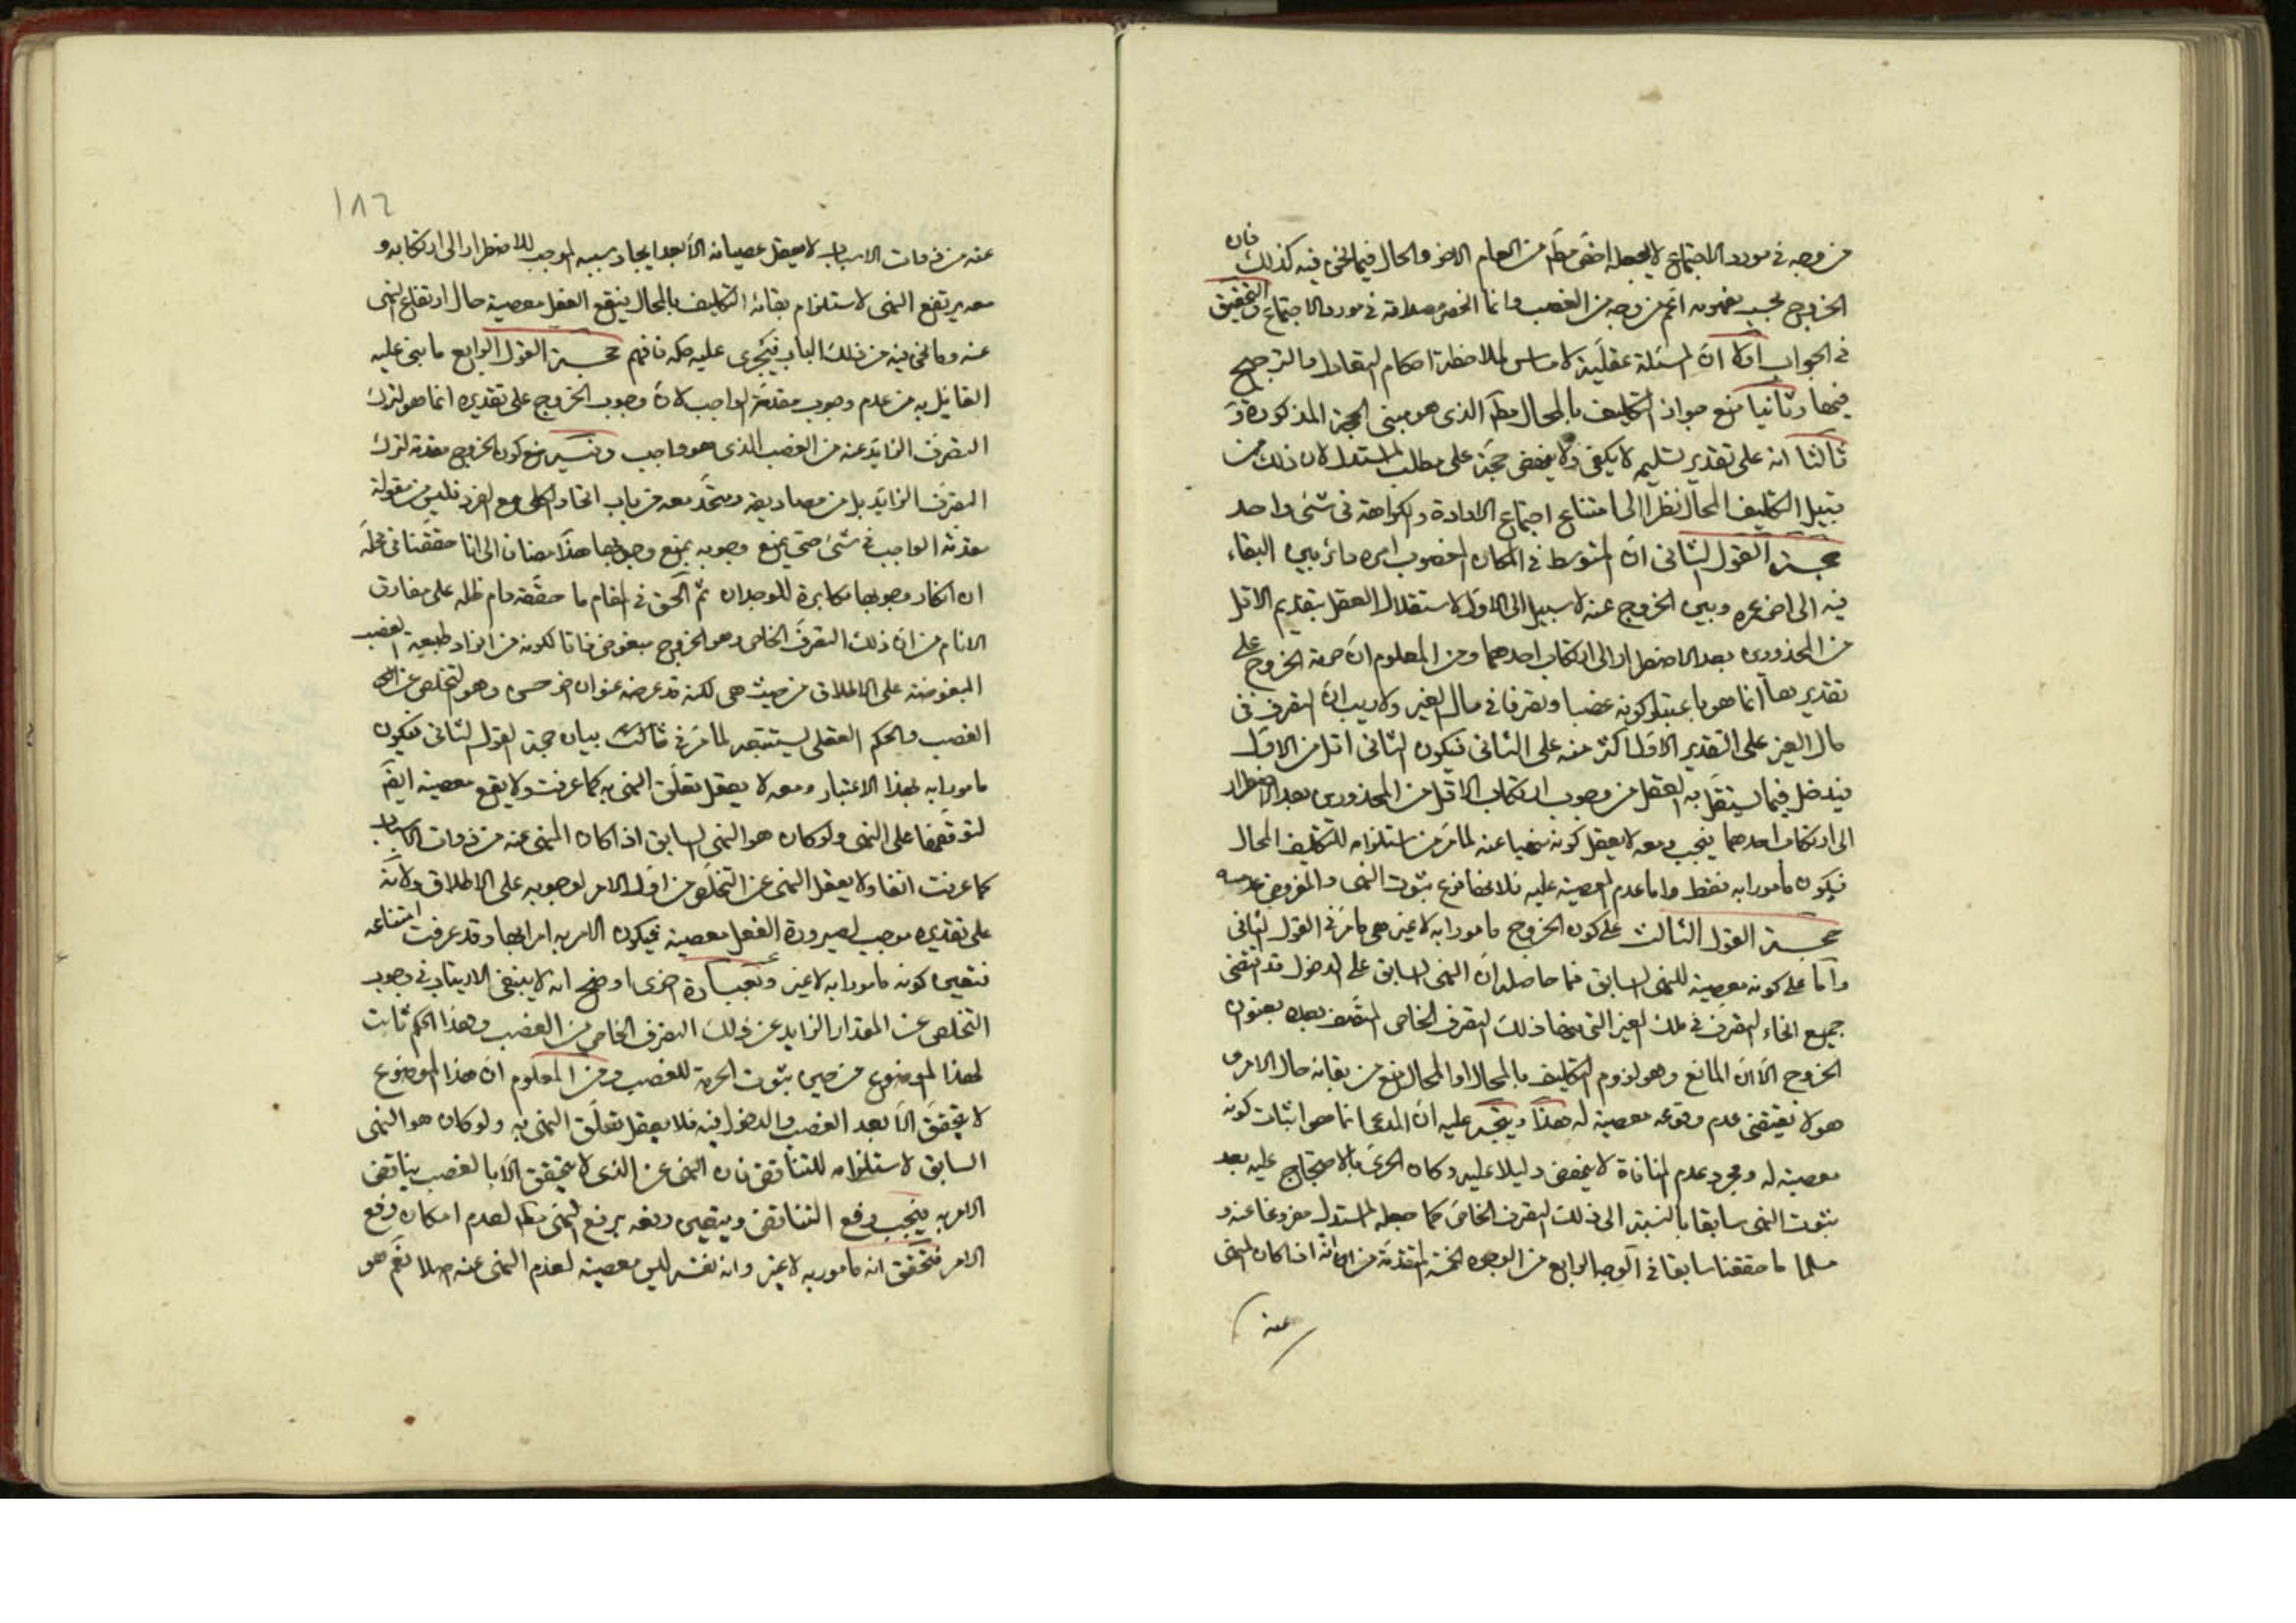 من وجه في مورد الاجتماع لا يجعله اخصّ مطم من العام الاخر والحال فيما نحن فيه كذلك فان
الخروج بحسب مفهومه اعم من وجه من الغصب وانما انحصر مصداقه في مورد الاجتماع والتحقيق
في الجواب اولا ان المسئلة عقليّة لا مساس لملاحظة احكام التعادل والترجيح
فيها وثانيا منع جواز التكليف بالمحال مطم الذي هو مبنى الحجة المذكورة و
ثالثا انه على تقدير تسليمه لا يكفي ولا ينهض حجّة على مطلب المستدل لان ذلك من
قبيل التكليف المحال نظرا الى امتناع اجتماع الارادة والكراهة في شئ واحد
حجة القول الثاني انّ المتوسط في المكان المغصوب امره دائر بين البقاء
فيه الى اخر عمره وبين الخروج عنه لا سبيل الى الاول لاستقلال العقل بتقديم الاقل
من المحذورين بعد الاضطرار الى ارتكاب احدهما ومن المعلوم انّ حرمة الخروج على
تقديرها انما هو باعتبار كونه غصبا وتصرفا في مال الغير ولا ريب انّ التصرف في
مال الغير على التقدير الاول اكثر منه على الثاني فيكون الثاني اقل من الاول
فيدخل فيما يستقل به العقل من وجوب ارتكاب الاقل من المحذورين بعد الاضطرار
الى ارتكاب احدهما فيجب ومعه لا يعقل كونه منهيا عنه لما مرّ من استلزامه للتكليف المحال
فيكون مأمورا به فقط واما عدم المعصية عليه فلانها فرع ثبوت النهى والمفروض عدمه
حجة القول الثالث على كون الخروج مامورا به لا غير هي ما مرّ في القول الثاني
وامّا على كونه معصية للنهى السابق فما حاصله انّ النهى السابق على الدخول قد اقتضى
جميع انحاء التصرف في ملك الغير التي منها ذلك التصرف الخاص المتّصف بعده بعنوان
الخروج الّا انّ المانع وهو لزوم التكليف بالمحال او المحال منع من بقائه حال الامر و
هو لا يقتضى عدم وقوعه معصية له هذا ويتجه عليه ان المدعى انما هو اثبات كونه
معصية له ومجرد عدم المنافاة لا ينهض دليلا عليه وكان الحرىّ بالاحتجاج عليه بعد
ثبوت النهى سابقا بالنسبة الى ذلك التصرف الخاص كما جعله المستدل مفروغا عنه و
مسلما ما حققنا سابقا في الوجه الرابع من الوجوه الخمسة المتقدمة من انه اذا كان المنهى
عنه
١٨٦
عنه من ذوات الاسباب لا يعقل عصيانه الّا بعد ايجاد سببه الموجب للاضطرار الى ارتكابه و
معه يرتفع النهى لاستلزام بقائه التكليف بالمحال فيقع الفعل معصية حال ارتفاع النهى
عنه وما نحن فيه من ذلك الباب فيجرى عليه حكمه فافهم حجة القول الرابع ما بنى عليه
القائل به من عدم وجوب مقدمة الواجب لانّ وجوب الخروج على تقديره انما هو لترك
التصرف الزايد عنه من الغصب الذي هو واجب وفيه منع كون الخروج مقدمة لترك
التصرف الزايد بل من مصاديقه ومتحد معه من باب اتحاد الكلى مع الفرد فليس من مقولة
مقدمة الواجب في شئ حتى يمنع وجوبه بمنع وجوبها هذا مضافا الى انا حققنا في محلّه
ان انكار وجوبها مكابرة للوجدان ثم الحق في المقام ما حققه دام ظله على مفارق
الانام من انّ ذلك التصرف الخاص وهو الخروج مبغوض ذاتا لكونه من افراد طبيعة الغصب
المبغوضة على الاطلاق من حيث هي لكنه قد عرضه عنوان اخر حسن وهو التخلص عن
الغصب والحكم العقلى يستتبعه لما مرّ في ثالث بيان حجة القول الثاني فيكون
مامورا به بهذا الاعتبار ومعه لا يعقل تعلّق النهى به كما عرفت ولا يقع معصية ايضً
لتوقفها على النهى ولو كان هو النهى السابق اذا كان المنهى عنه من ذوات الاسباب
كما عرفت انفا ولا يعقل النهى عن التخلّص من اول الامر لوجوبه على الاطلاق ولانّه
على تقديره موجب لصيرورة الفعل معصية فيكون الامر به امرا بها وقد عرفت امتناعه
فتعين كونه مامورا به لا غير وبعبارة اخرى اوضح انه لا ينبغي الارتياب في وجوب
التخلص عن المقدار الزايد عن ذلك التصرف الخاص من الغصب وهذا الحكم ثابت
لهذا الموضوع من حين ثبوت الحرمة للغصب ومن المعلوم ان هذا الموضوع
لا يتحقق الّا بعد الغصب والدخول فيه فلا يعقل تعلّق النهى به ولو كان هو النهى
السابق لاستلزامه للتناقض فان النهى عن الذى لا يتحقق الّا بالغصب يناقض
الامر به فيجب دفع التناقض ويتعين دفعه برفع النهى مطم لعدم امكان رفع
الامر فتحقق انه مامور به لا غير وانه بنفسه ليس معصية لعدم النهى عنه اصلا نعم هو